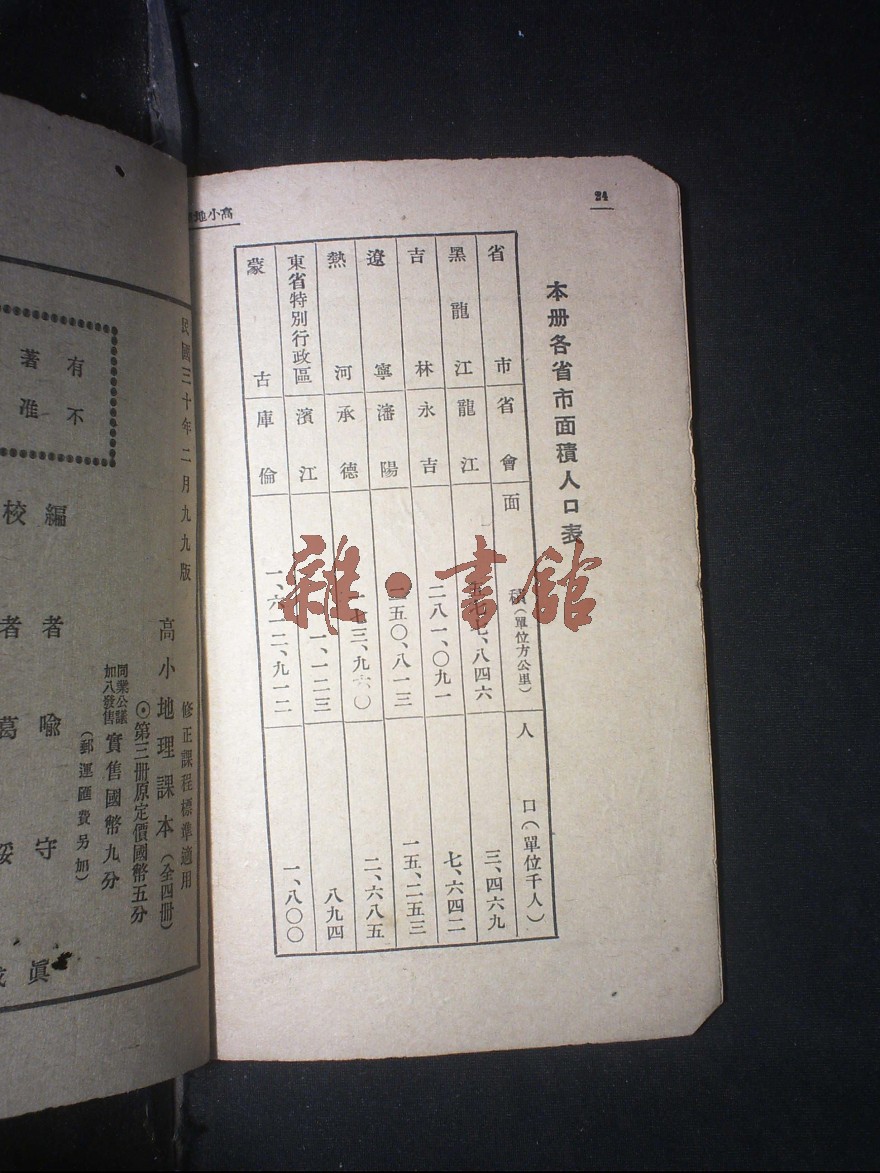 24
高小地
本册各省市面積人口表
省市 省會 面積(單位方公里) 人口(單位千人)
黑龍江 龍江 七七、八四六 三、四六九
吉林 永吉 二八一、〇九一 七、六四二
遼寧 瀋陽 二五〇、八一三 一五、二五三
熱河 承德 七三、九六〇 二、六八五
東省特別行政區 濱江 一、一二三 八九四
蒙古 庫倫 一、六一二、九一二 一、八〇〇
雜·書館
民國三十年二月九九版
修正課程標準適用
高小地理課本(全四冊)
⊙第三冊原定價國幣五分
同業公議
加八發售
實售國幣九分
(郵運匯費另加)
有
不
著
准
編者 喻守眞
校者 葛綏成